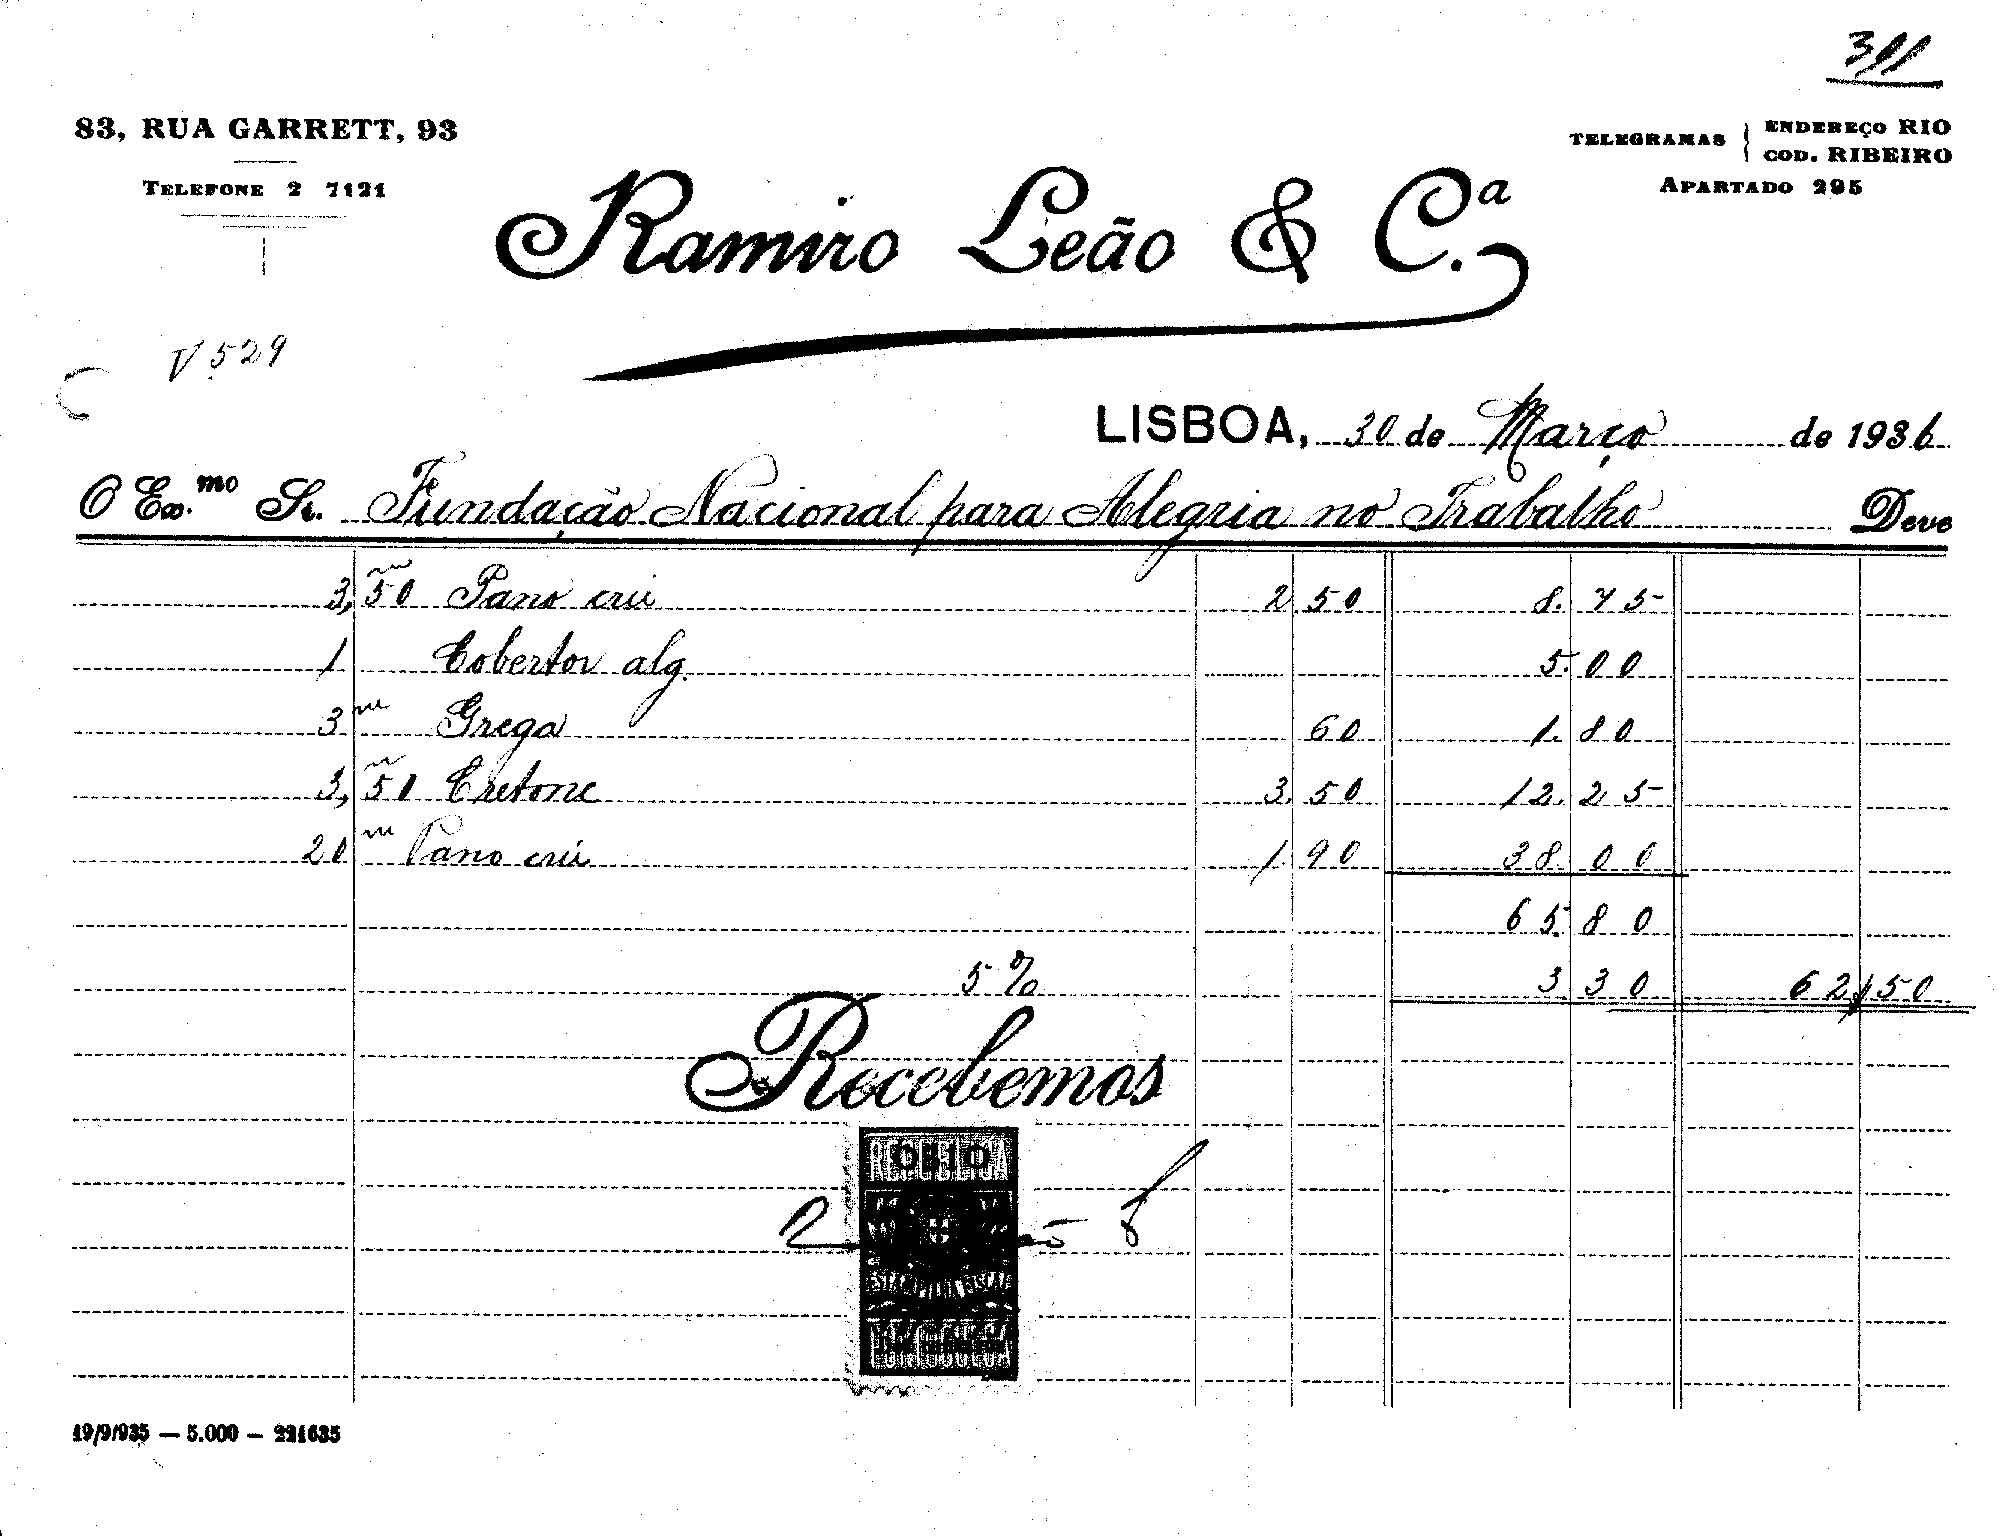 311
83, RUA GARRETT, 93
TELEFONE 2 7121
TELEGRAMAS
ENDEREÇO RIO
COD. RIBEIRO
APARTADO 295
Ramiro Leão & Cª.
V 529
LISBOA, 30 de Março de 1936
O Ex.mo Sr. Fundação Nacional para Alegria no Trabalho Deve
3,m50 Pano crú 2.50 8.75
1 Cobertor alg. 5.00
3m Grega 60 1.80
3,m50 Cretone 3.50 12.25
20m Pano crú 1.90 38.00
65.80
5% 3.30 62,50
Recebemos
ESTAMPILHA FISCAL
19/9/935 — 5.000 — 221635